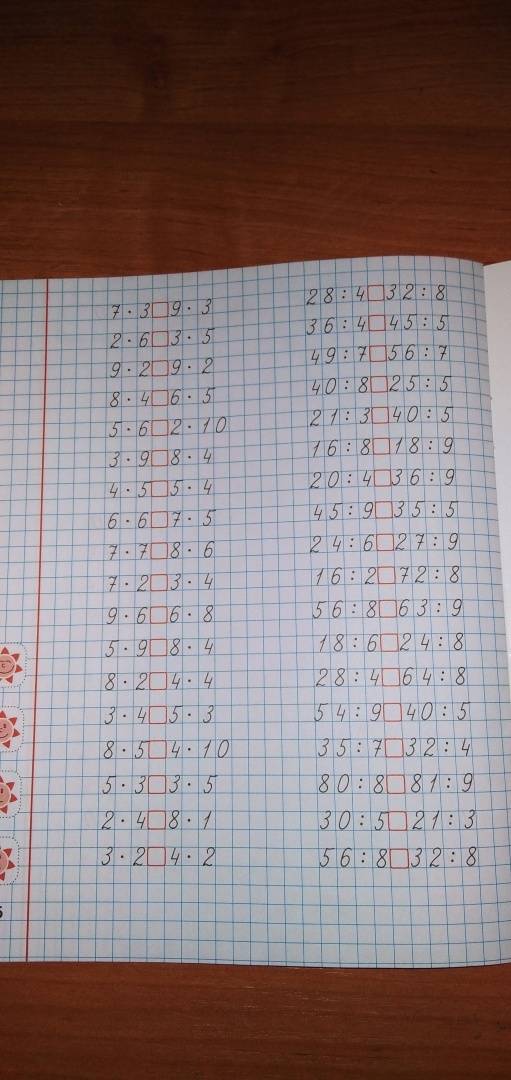 7 · 3 □ 9 · 3
2 · 6 □ 3 · 5
9 · 2 □ 9 · 2
8 · 4 □ 6 · 5
5 · 6 □ 2 · 10
3 · 9 □ 8 · 4
4 · 5 □ 5 · 4
6 · 6 □ 7 · 5
7 · 7 □ 8 · 6
7 · 2 □ 3 · 4
9 · 6 □ 6 · 8
5 · 9 □ 8 · 4
8 · 2 □ 4 · 4
3 · 4 □ 5 · 3
8 · 5 □ 4 · 10
5 · 3 □ 3 · 5
2 · 4 □ 8 · 1
3 · 2 □ 4 · 2
28 : 4 □ 32 : 8
36 : 4 □ 45 : 5
49 : 7 □ 56 : 7
40 : 8 □ 25 : 5
21 : 3 □ 40 : 5
16 : 8 □ 18 : 9
20 : 4 □ 36 : 9
45 : 9 □ 35 : 5
24 : 6 □ 27 : 9
16 : 2 □ 72 : 8
56 : 8 □ 63 : 9
18 : 6 □ 24 : 8
28 : 4 □ 64 : 8
54 : 9 □ 40 : 5
35 : 7 □ 32 : 4
80 : 8 □ 81 : 9
30 : 5 □ 21 : 3
56 : 8 □ 32 : 8